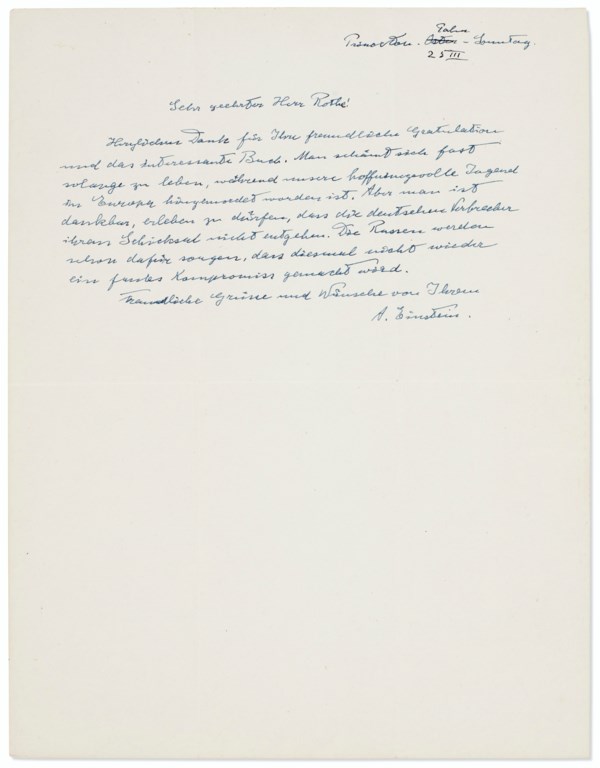 Princeton. Palm
Oster - Sonntag.
25 III
Sehr geehrter Herr Rothé
Herzlichen Dank für Ihre freundliche Gratulation
und das interessante Buch. Man schämt sich fast
solange zu leben, während unsere hoffnungsvolle Jugend
in Europa hingemordet worden ist. Aber man ist
dankbar, erleben zu dürfen, dass die deutschen Verbrecher
ihrem Schicksal nicht entgehen. Die Russen werden
schon dafür sorgen, dass diesmal nicht wieder
ein faules Kompromiss gemacht wird.
Freundliche Grüsse und Wünsche von Ihrem
A. Einstein.